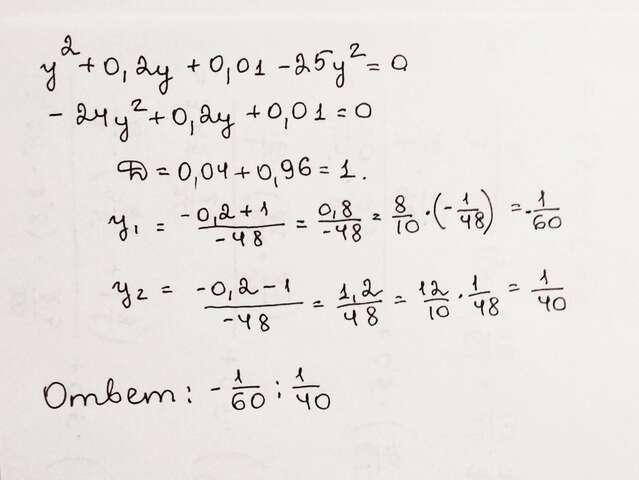 y² + 0,2y + 0,01 - 25y² = 0
- 24y² + 0,2y + 0,01 = 0
D = 0,04 + 0,96 = 1.
y₁ = (-0,2 + 1)/(-48) = 0,8/(-48) = 8/10 · (-1/48) = -1/60
y₂ = (-0,2 - 1)/(-48) = 1,2/48 = 12/10 · 1/48 = 1/40
Ответ: -1/60 ; 1/40